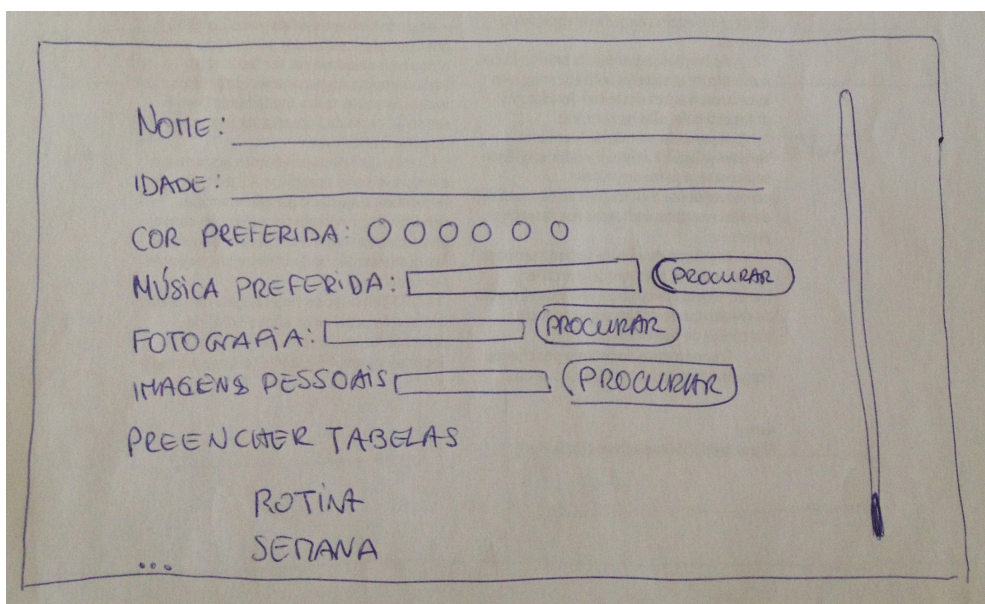 NOME:
IDADE:
COR PREFERIDA:
MÚSICA PREFERIDA: PROCURAR
FOTOGRAFIA: PROCURAR
IMAGENS PESSOAIS PROCURAR
PREENCHER TABELAS
ROTINA
SEMANA
...